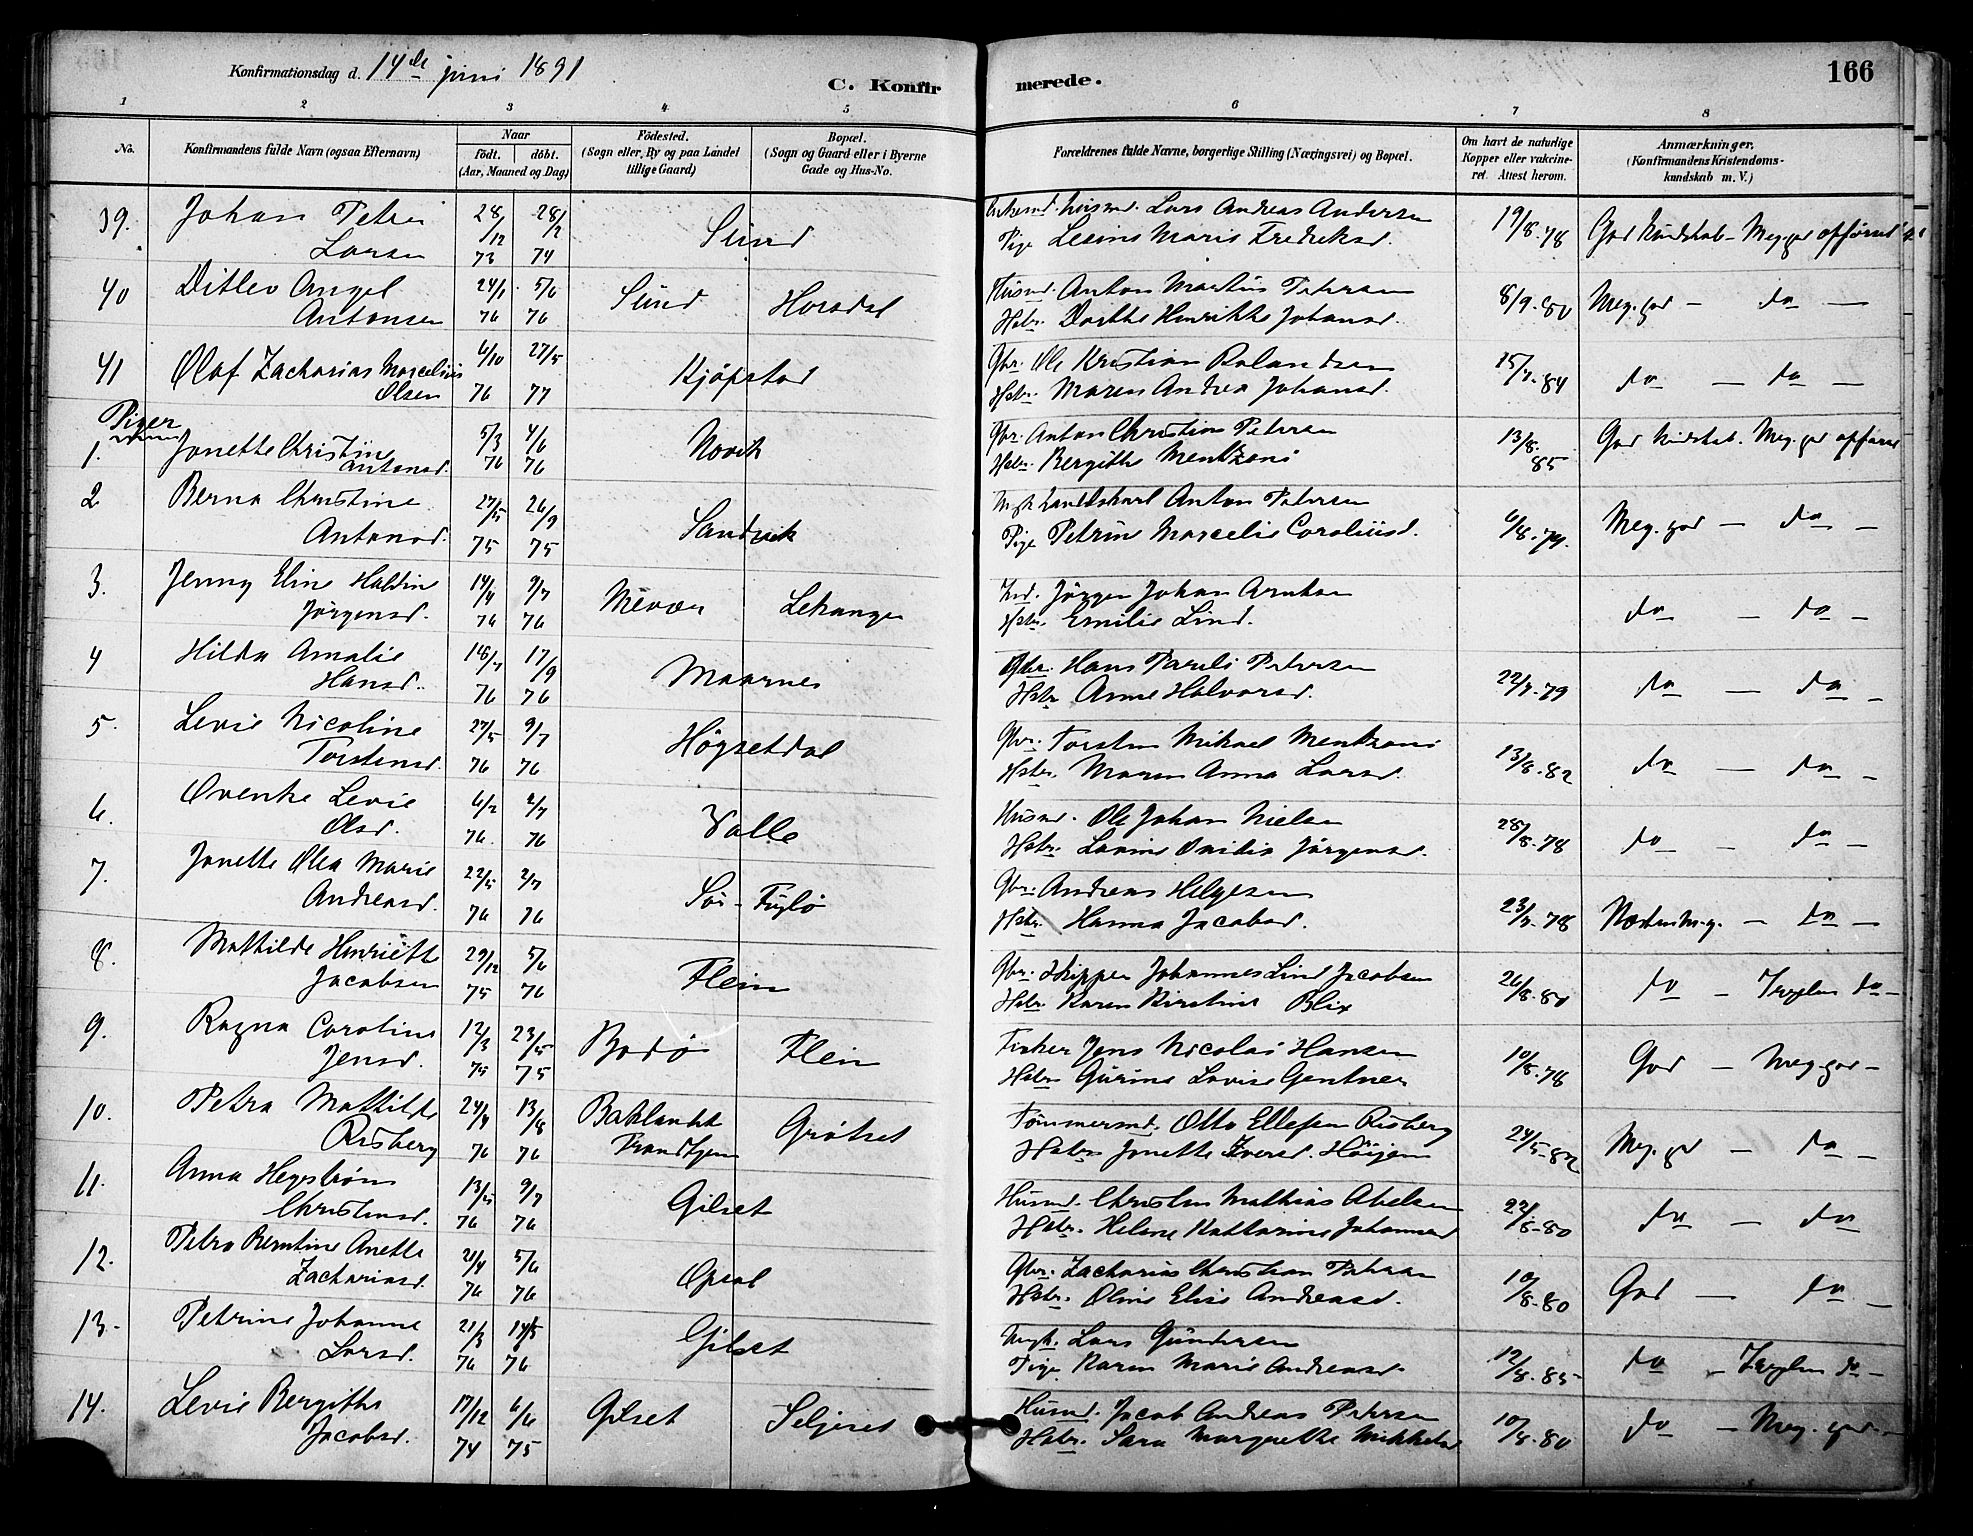 Konfirmationsdag d. 14de juni 1891
C. Konfirmerede.
166
1 2 3 4 5 6 7 8
No. Konfirmandens fulde Navn (ogsaa Efternavn) Naar födt. döbt. (Aar, Maaned og Dag) Födested. (Sogn eller, By og paa Landet tillige Gaard) Bopæl. (Sogn og Gaard eller i Byerne Gade og Hus-No. Forældrenes fulde Navne, borgerlige Stilling (Næringsvei) og Bopæl. Om havt de naturlige Kopper eller vakcineret. Attest herom. Anmærkninger. (Konfirmandens Kristendomskundskab m. V.)
39. Johan Petri 28/12 28/2 Sund husmd. Lars Andreas Andersen 19/8-78 God Kundskab - Meg god opførsel
Larsen 73 74 Pige Lesine Marie Fredriksd.
40 Ditlev Angel 24/1 5/6 Sund Horsdal Husmd. Anton Martin Petersen 8/9-80 Meg. god - do -
Antonsen 76 76 Hstr. Dorthe Henrikke Johansd.
41 Olaf Zacharias Marcelius 6/10 27/5 Kjøpstad Gbr. Ole Kristian Rolandsen 15/7-84 do - do -
Olsen 76 77 Hstr. Maren Andrea Johansd.
Piger
1. Jonette Christine 5/3 4/6 Novik Gbr. Anton Christian Petersen 13/8-85 God kundskab. Meg. god opførsel
Antonsd. 76 76 Hstr. Bergitte Mentzoni
2 Berna Christine 27/5 26/9 Sandvik Ungk. Anton Petersen 6/8-79. Meg. god - do -
Antonsd. 75 75 Pige Petrine Marcelie Coroliusd.
3. Jenny Eline Haldine 14/4 9/7 Mevær Lekanger Ind. Jörgen Johan Arntsen do - do -
Jørgensd. 76 76 Hstr. Emilie Lind.
4 Hilda Amalie 16/7 17/9 Maarnes Gbr. Hans Pareli Petersen 22/7-79 do - do -
Hansd. 76 76 Hstr Anne Halvorsd.
5. Levie Nicoline 27/5 9/7 Högsetdal Gbr. Torsten Mikael Mentzoni 13/8-82 do - do -
Torstensd. 76 76 Hstr. Maren Anna Larsd.
6. Ovenke Levie 6/2 2/7 Valle Husmd. Ole Johan Nielsen 28/8-78 do - do -
Olsd. 76. 76 Hstr. Lovine Ovidia Jørgensd.
7. Jonette Olea Marie 22/5 2/7 Sör-Fuglö Gbr. Andreas Helgesen 23/7-78 Næsten Meg. - do -
Andreasd. 76 76 Hstr. Hanna Jacobsd.
8. Mathilde Henriette 29/12 5/6 Flein Gbr. Skipper Johannes Lind Jacobsen 26/8-80 do - do -
Jacobsen 75 76 Hstr. Karen Kirstine Blix
9. Ragna Caroline 12/3 23/5 Bodö Flein Fisker Jens Nicolai Hansen 10/8-78 God - Meg. god -
Jensd. 75 75 Hstr. Gurine Lovise Gentner
10. Petra Mathilde 24/4 13/8 Baklandet Grötset Tömmermd. Otto Ellefsen Risberg 24/5-82 Meg. god - do -
Risberg 76 76 Trondhjem Hstr Jonette Iversd. Höijem
11. Anna Hegström 13/5 9/7 Gilset Husmd. Christen Mathias Abelsen 22/8-80 do - do
Christensd. 76 76 Hstr. Helene Katharine Johannesd
12. Petra Berntine Anette 21/4 5/6 Opsal Gbr. Zacharias Christian Petersen 10/8-80 God - do -
Zachariasd. 76 76 Hstr. Oline Elise Andreasd.
13. Petrine Johanne 21/3 14/5 Gilset Ungk. Lars Gundersen 12/8-85 do - do -
Larsd. 76 76 Pige Karen Marie Andreasd
14. Levie Bergithe 17/12 6/6 Gilset Seljeset Husmd. Jacob Andreas Petersen 10/8-80 do - Meg. god -
Jacobsd. 74 75 Hstr. Sara Margrethe Mikkelsd